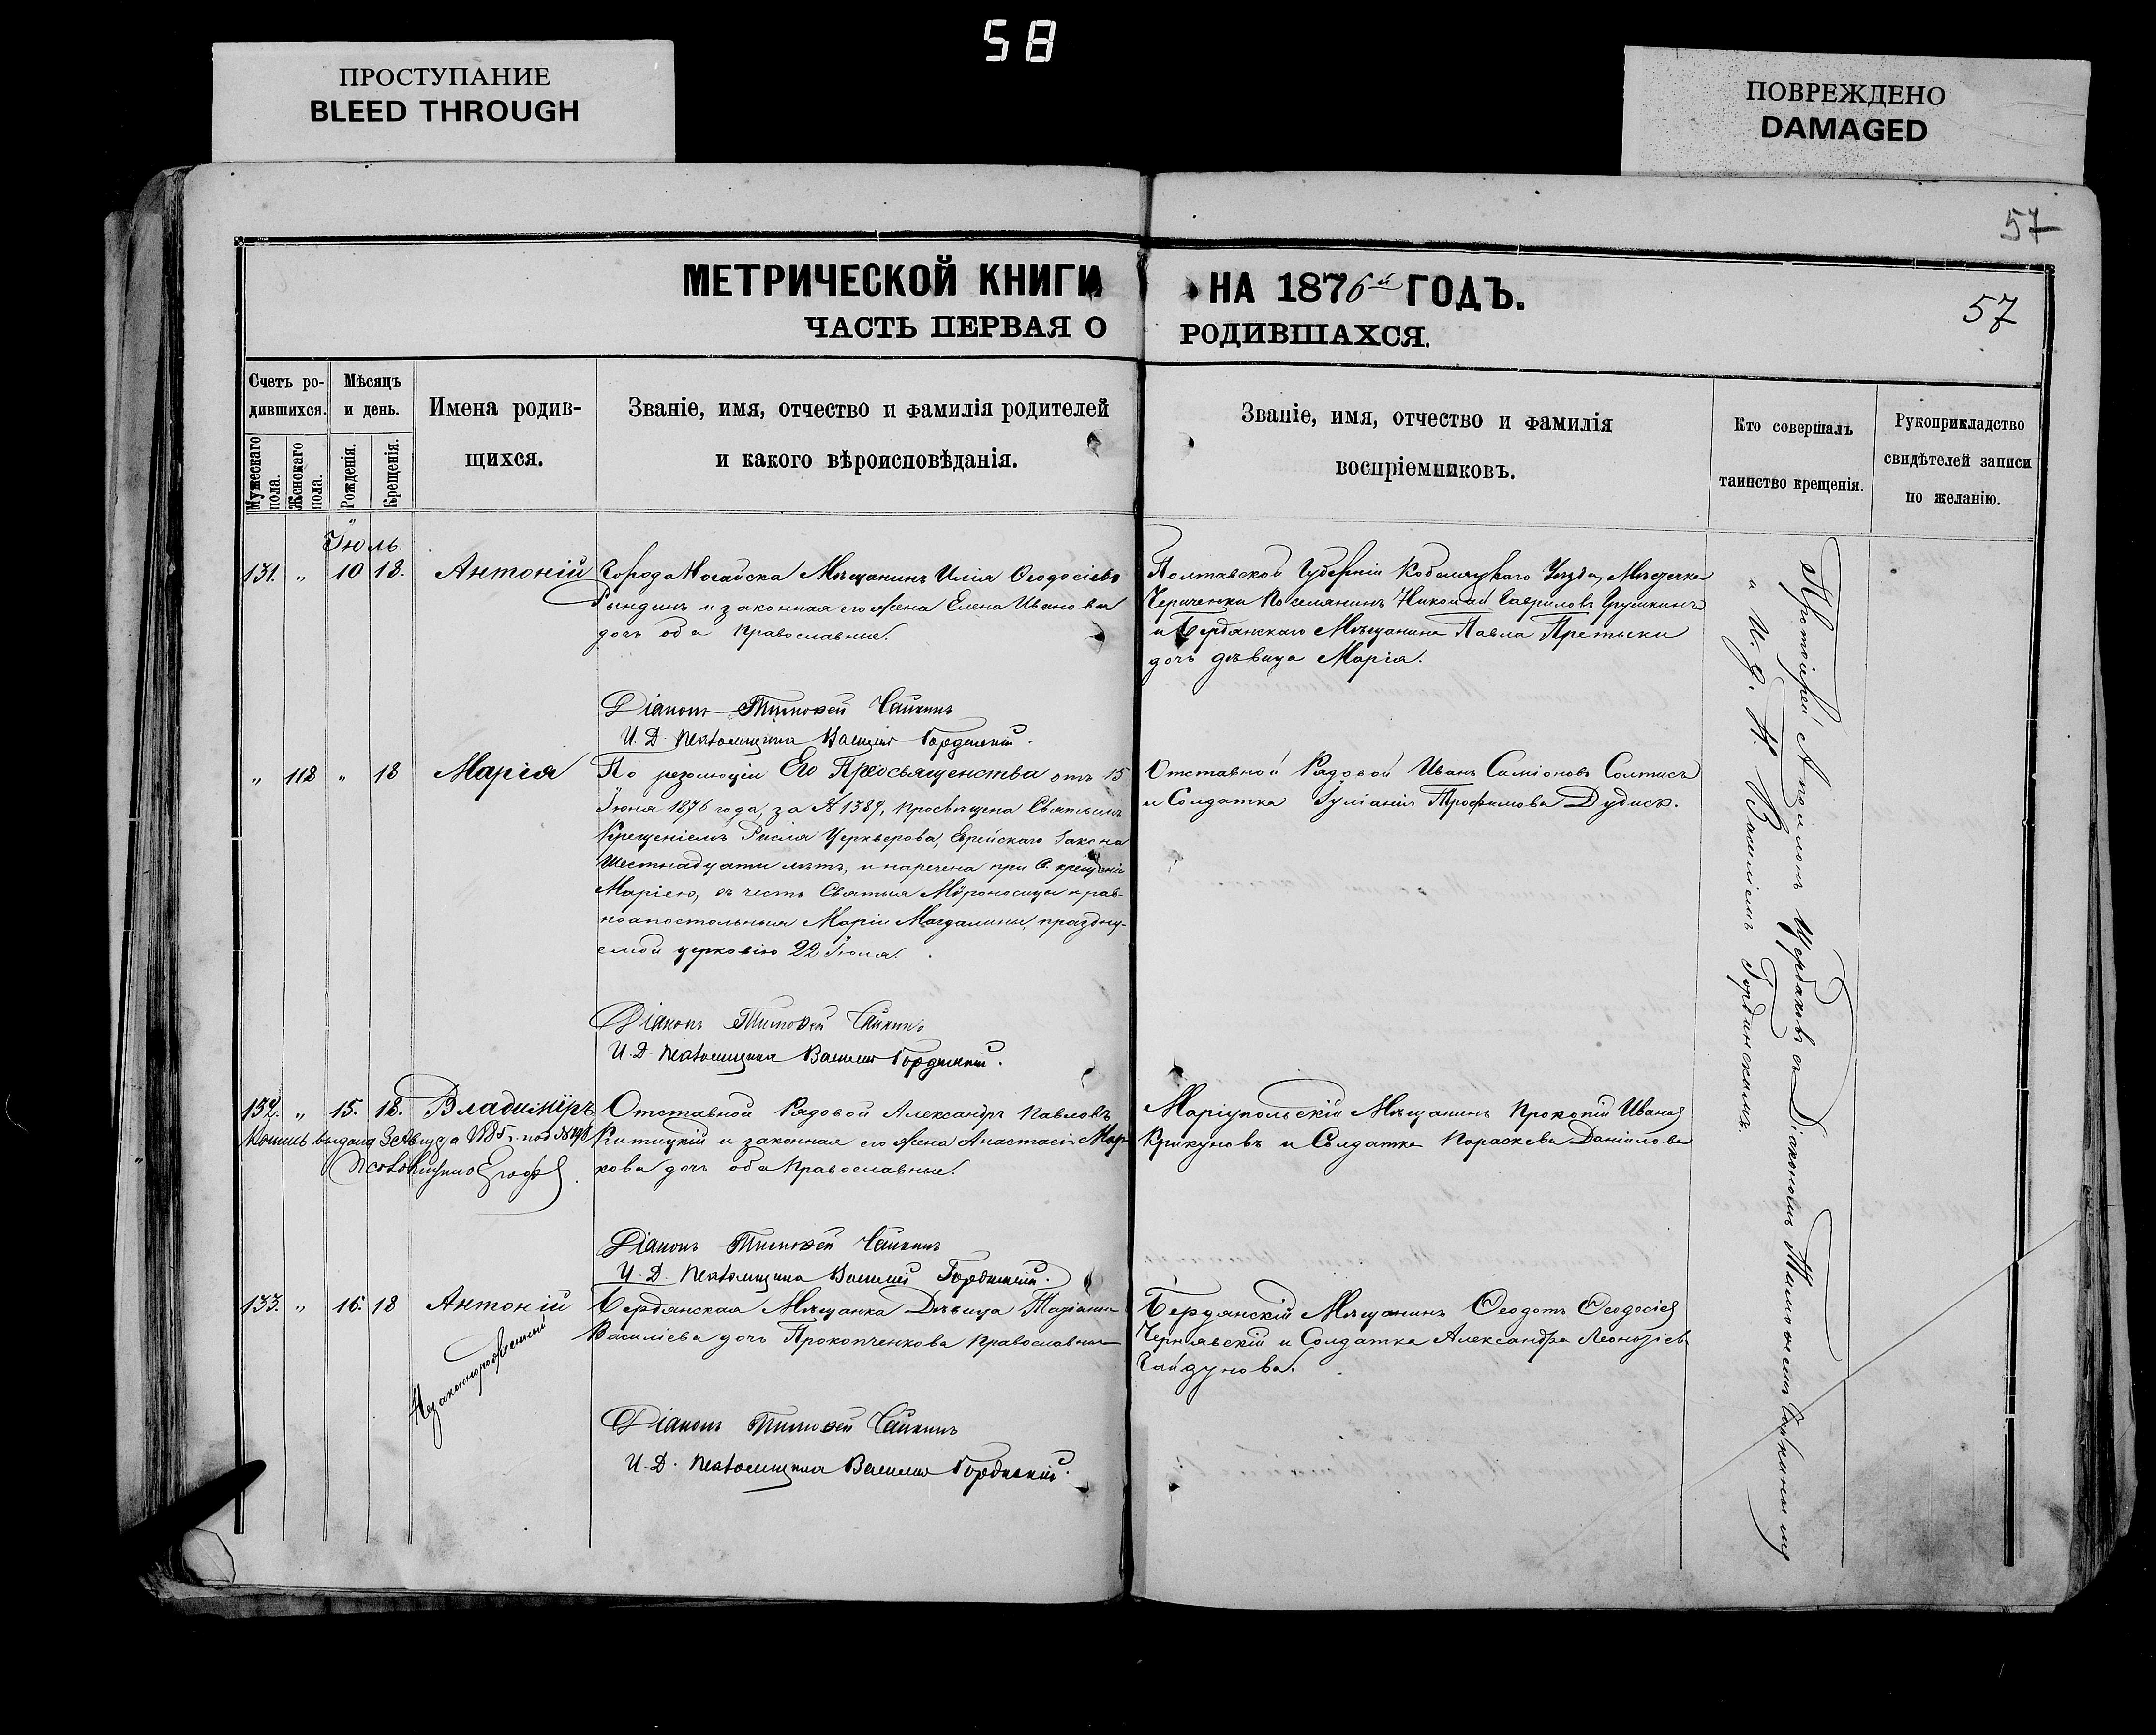 58
ПРОСТУПАНИЕ
BLEED THROUGH
ПОВРЕЖДЕНО
DAMAGED
57
57
МЕТРИЧЕСКОЙ КНИГИ НА 1876й ГОДЪ.
ЧАСТЬ ПЕРВАЯ О РОДИВШАХСЯ.
Счетъ ро-
дившихся.
Мужескаго
пола.
Женскаго
пола.
Мѣсяцъ
и день.
Рожденія.
Крещенія.
Имена родив-
щихся.
Званіе, имя, отчество и фамилія родителей
и какого вѣроисповѣданія.
Званіе, имя, отчество и фамилія
воспріемниковъ.
Кто совершалъ
таинство крещенія.
Рукоприкладство
свидѣтелей записи
по желанію.
Іюль.
131. „ 10 18. Антоній
Города Ногайска Мѣщанинъ Илія Ѳеодосіевъ
Рындинъ и законная его жена Елена Иванова
дочь оба Православные.
Полтавской Губерніи Кобеляцкаго Уѣзда, Мѣстечка
Поселянинъ Николай Гавриловъ
и Бердянскаго Мѣщанина Павла Претыки
дочь дѣвица Марія.
Діаконъ Тимоѳей Чайкинъ
И. Д. Псаломщика Василій Гординскій.
„ 118 „ 18 Марія
По резолюціи Его Преосвященства отъ 15
Іюня 1876 года, за № 1389, просвѣщена Святымъ
Крещеніемъ Рисля Церкверова, Еврейскаго Закона
Шестнадцати лѣтъ, и наречена при С. крещеніи
Маріею, въ честь Святыя Мѵроносицы и рав-
ноапостольныя Маріи Магдалины, праздну-
емой церковію 22 Іюля.
Отставной Рядовой Иванъ Симіоновъ Солтисъ
и Солдатка Іуліанія Трофимова Дудисъ.
Діаконъ Тимоѳей Чайкинъ
И. Д. Псаломщика Василій Гординскій.
132. „ 15. 18. Владиміръ
Копись выдана 3 Августа 1885 г. под №
Отставной Рядовой Александръ Павловъ
Китицкій и законная его жена Анастасія Мар-
кова дочь оба Православные.
Маріупольскій Мѣщанинъ Прокопій Ивановъ
Крикуновъ и Солдатка Параскева Даніилова
Діаконъ Тимоѳей Чайкинъ
И. Д. Псаломщика Василій Гординскій.
133. „ 16. 18 Антоній
Незаконнорожденный
Бердянская Мѣщанка Дѣвица Татіана
Василіева дочь Прокопченкова Православная
Бердянскій Мѣщанинъ Ѳеодотъ Ѳеодосіевъ
Чернявскій и Солдатка Александра Леонтіева
Гайдунова.
Діаконъ Тимоѳей Чайкинъ
И. Д. Псаломщика Василій Гординскій.
Протоіерей Аполлонъ Щербаковъ съ Діакономъ Тимоѳеемъ Чайкинымъ
и И. Д. П. Василіемъ Гординскимъ.